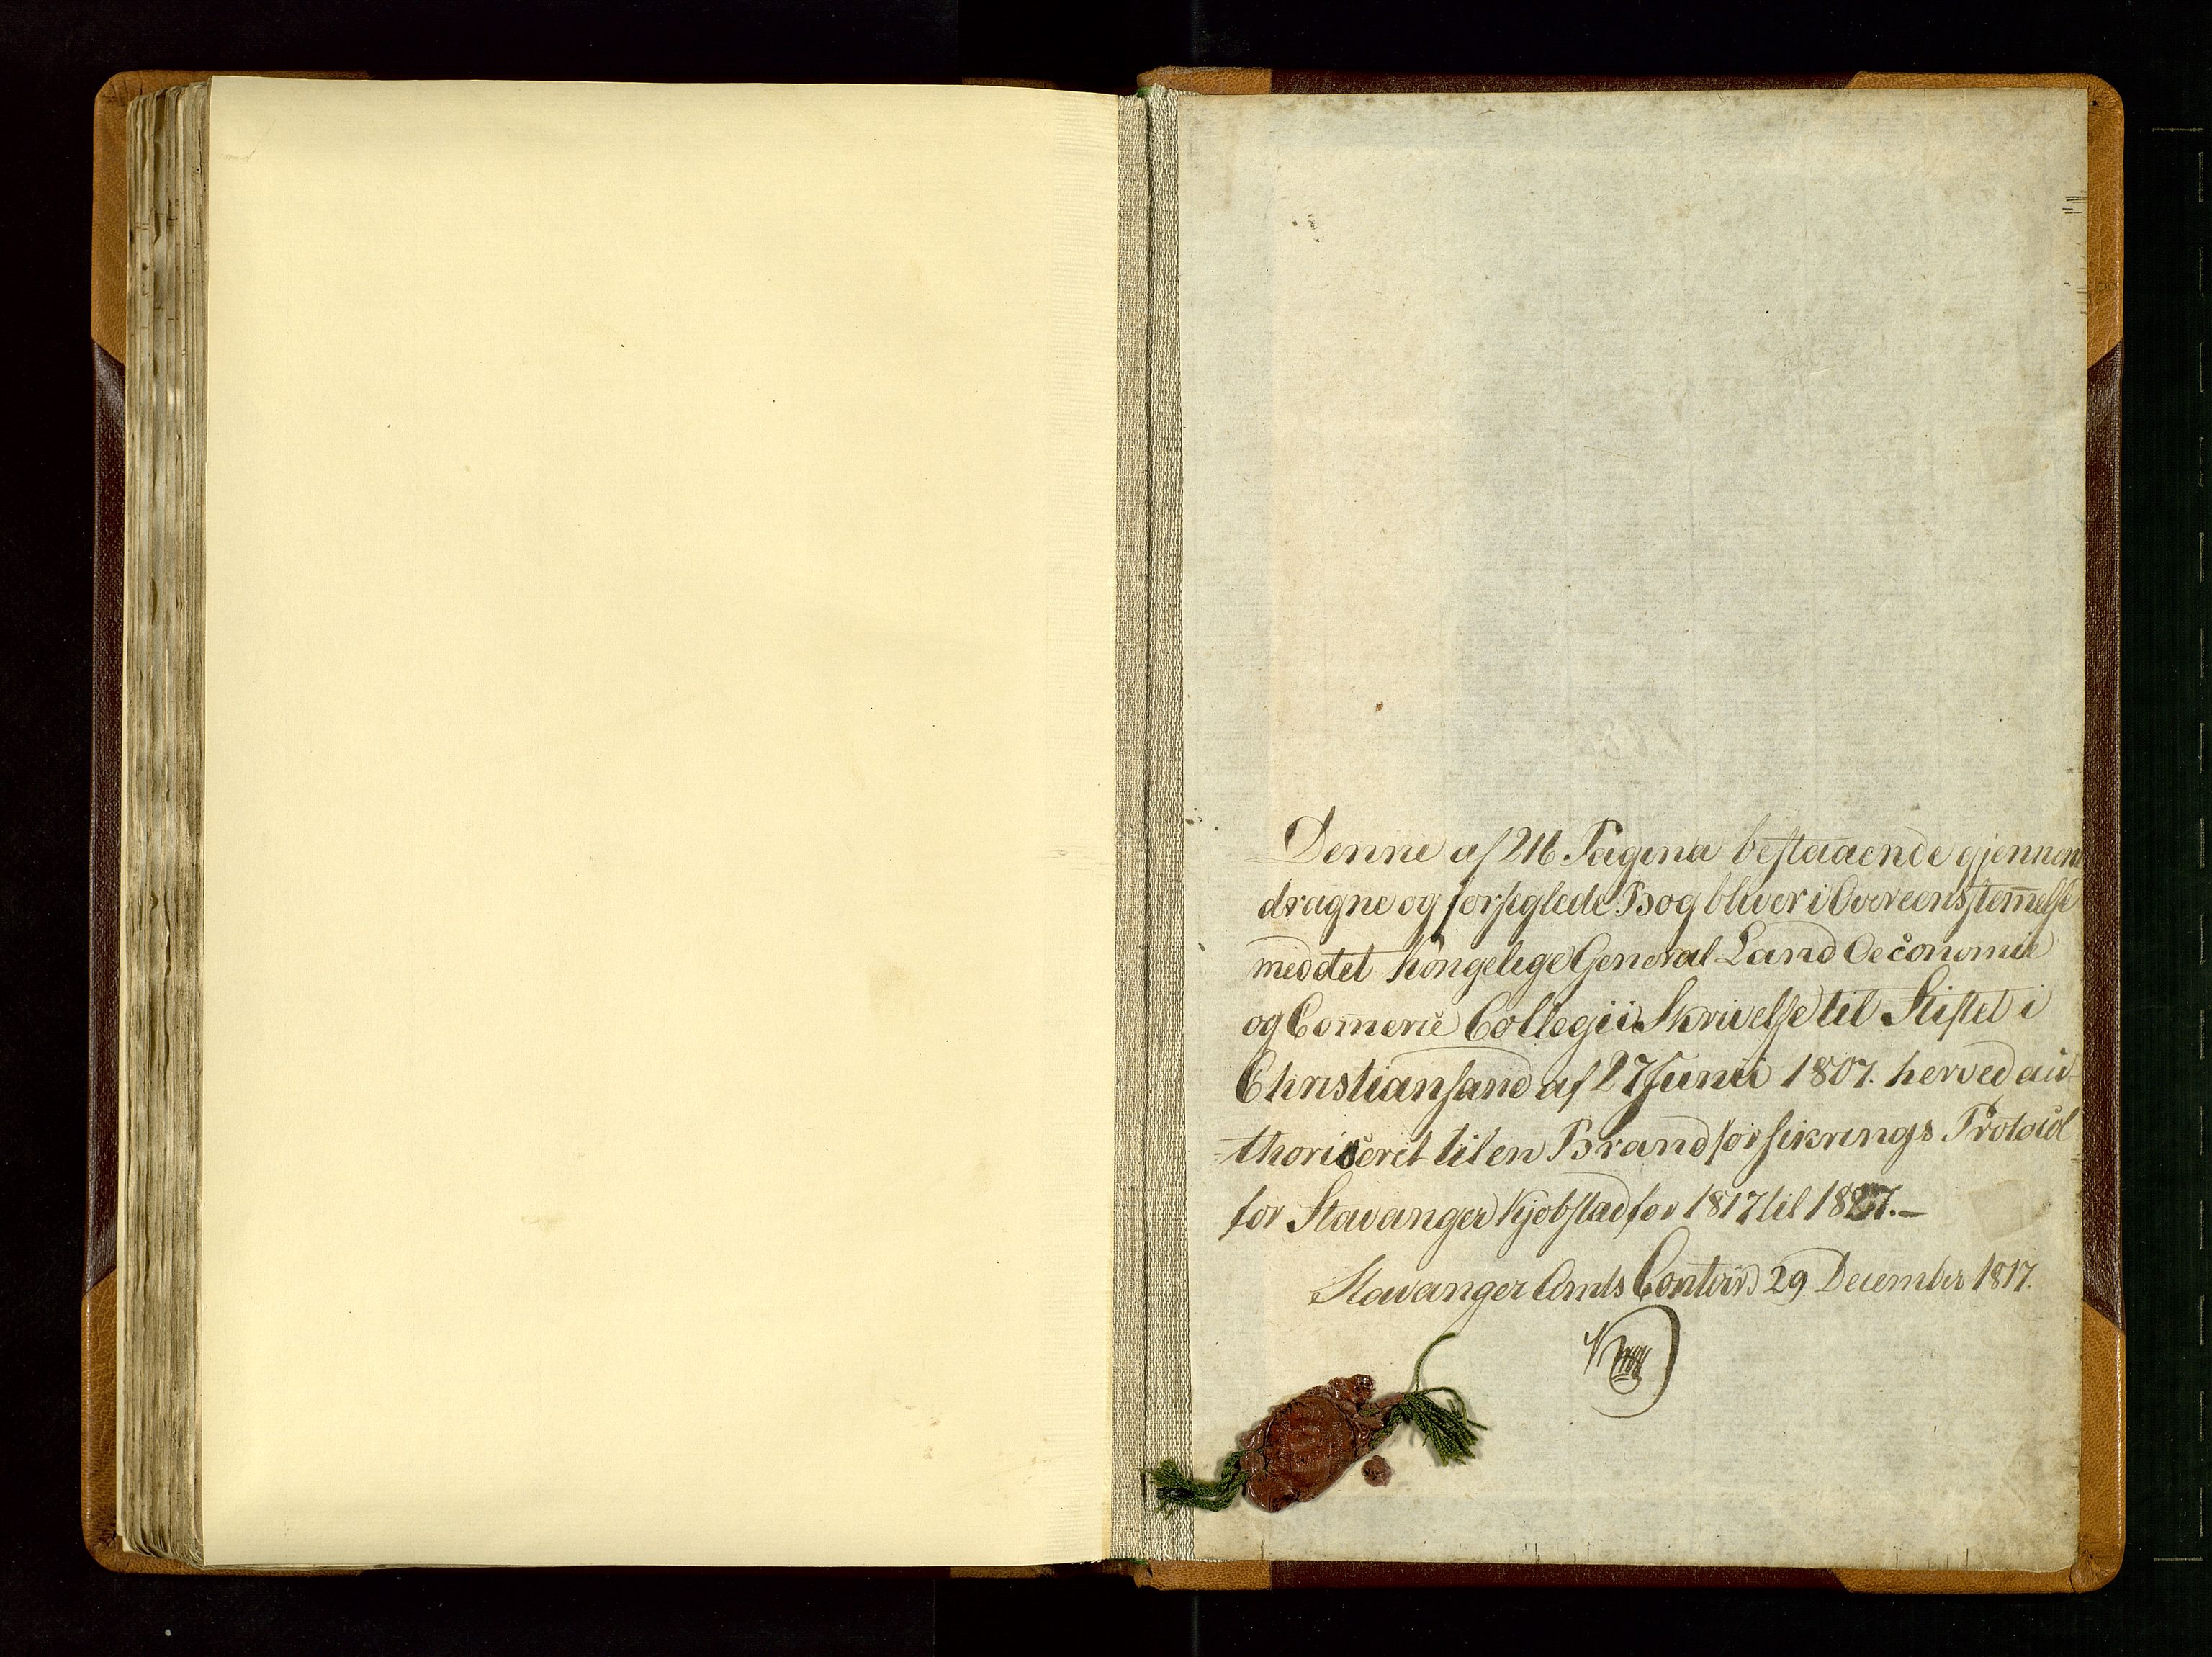 Denne af 216. Pagina bestaaende gjennem
dragne og forseglede Bog bliver i Overeensstem̅else
med det Kongelige General Land Oeconomie
og Com̅erce Collegii Skrivelse til Stiftet i
Christiansand af 27 Junii 1807. herved au-
-thoriseret til en Brandforsikrings Protocol
for Stavanger Kjøbstad for 1817 til 1827.—
Stavanger Amts Contoir 29 December 1817.